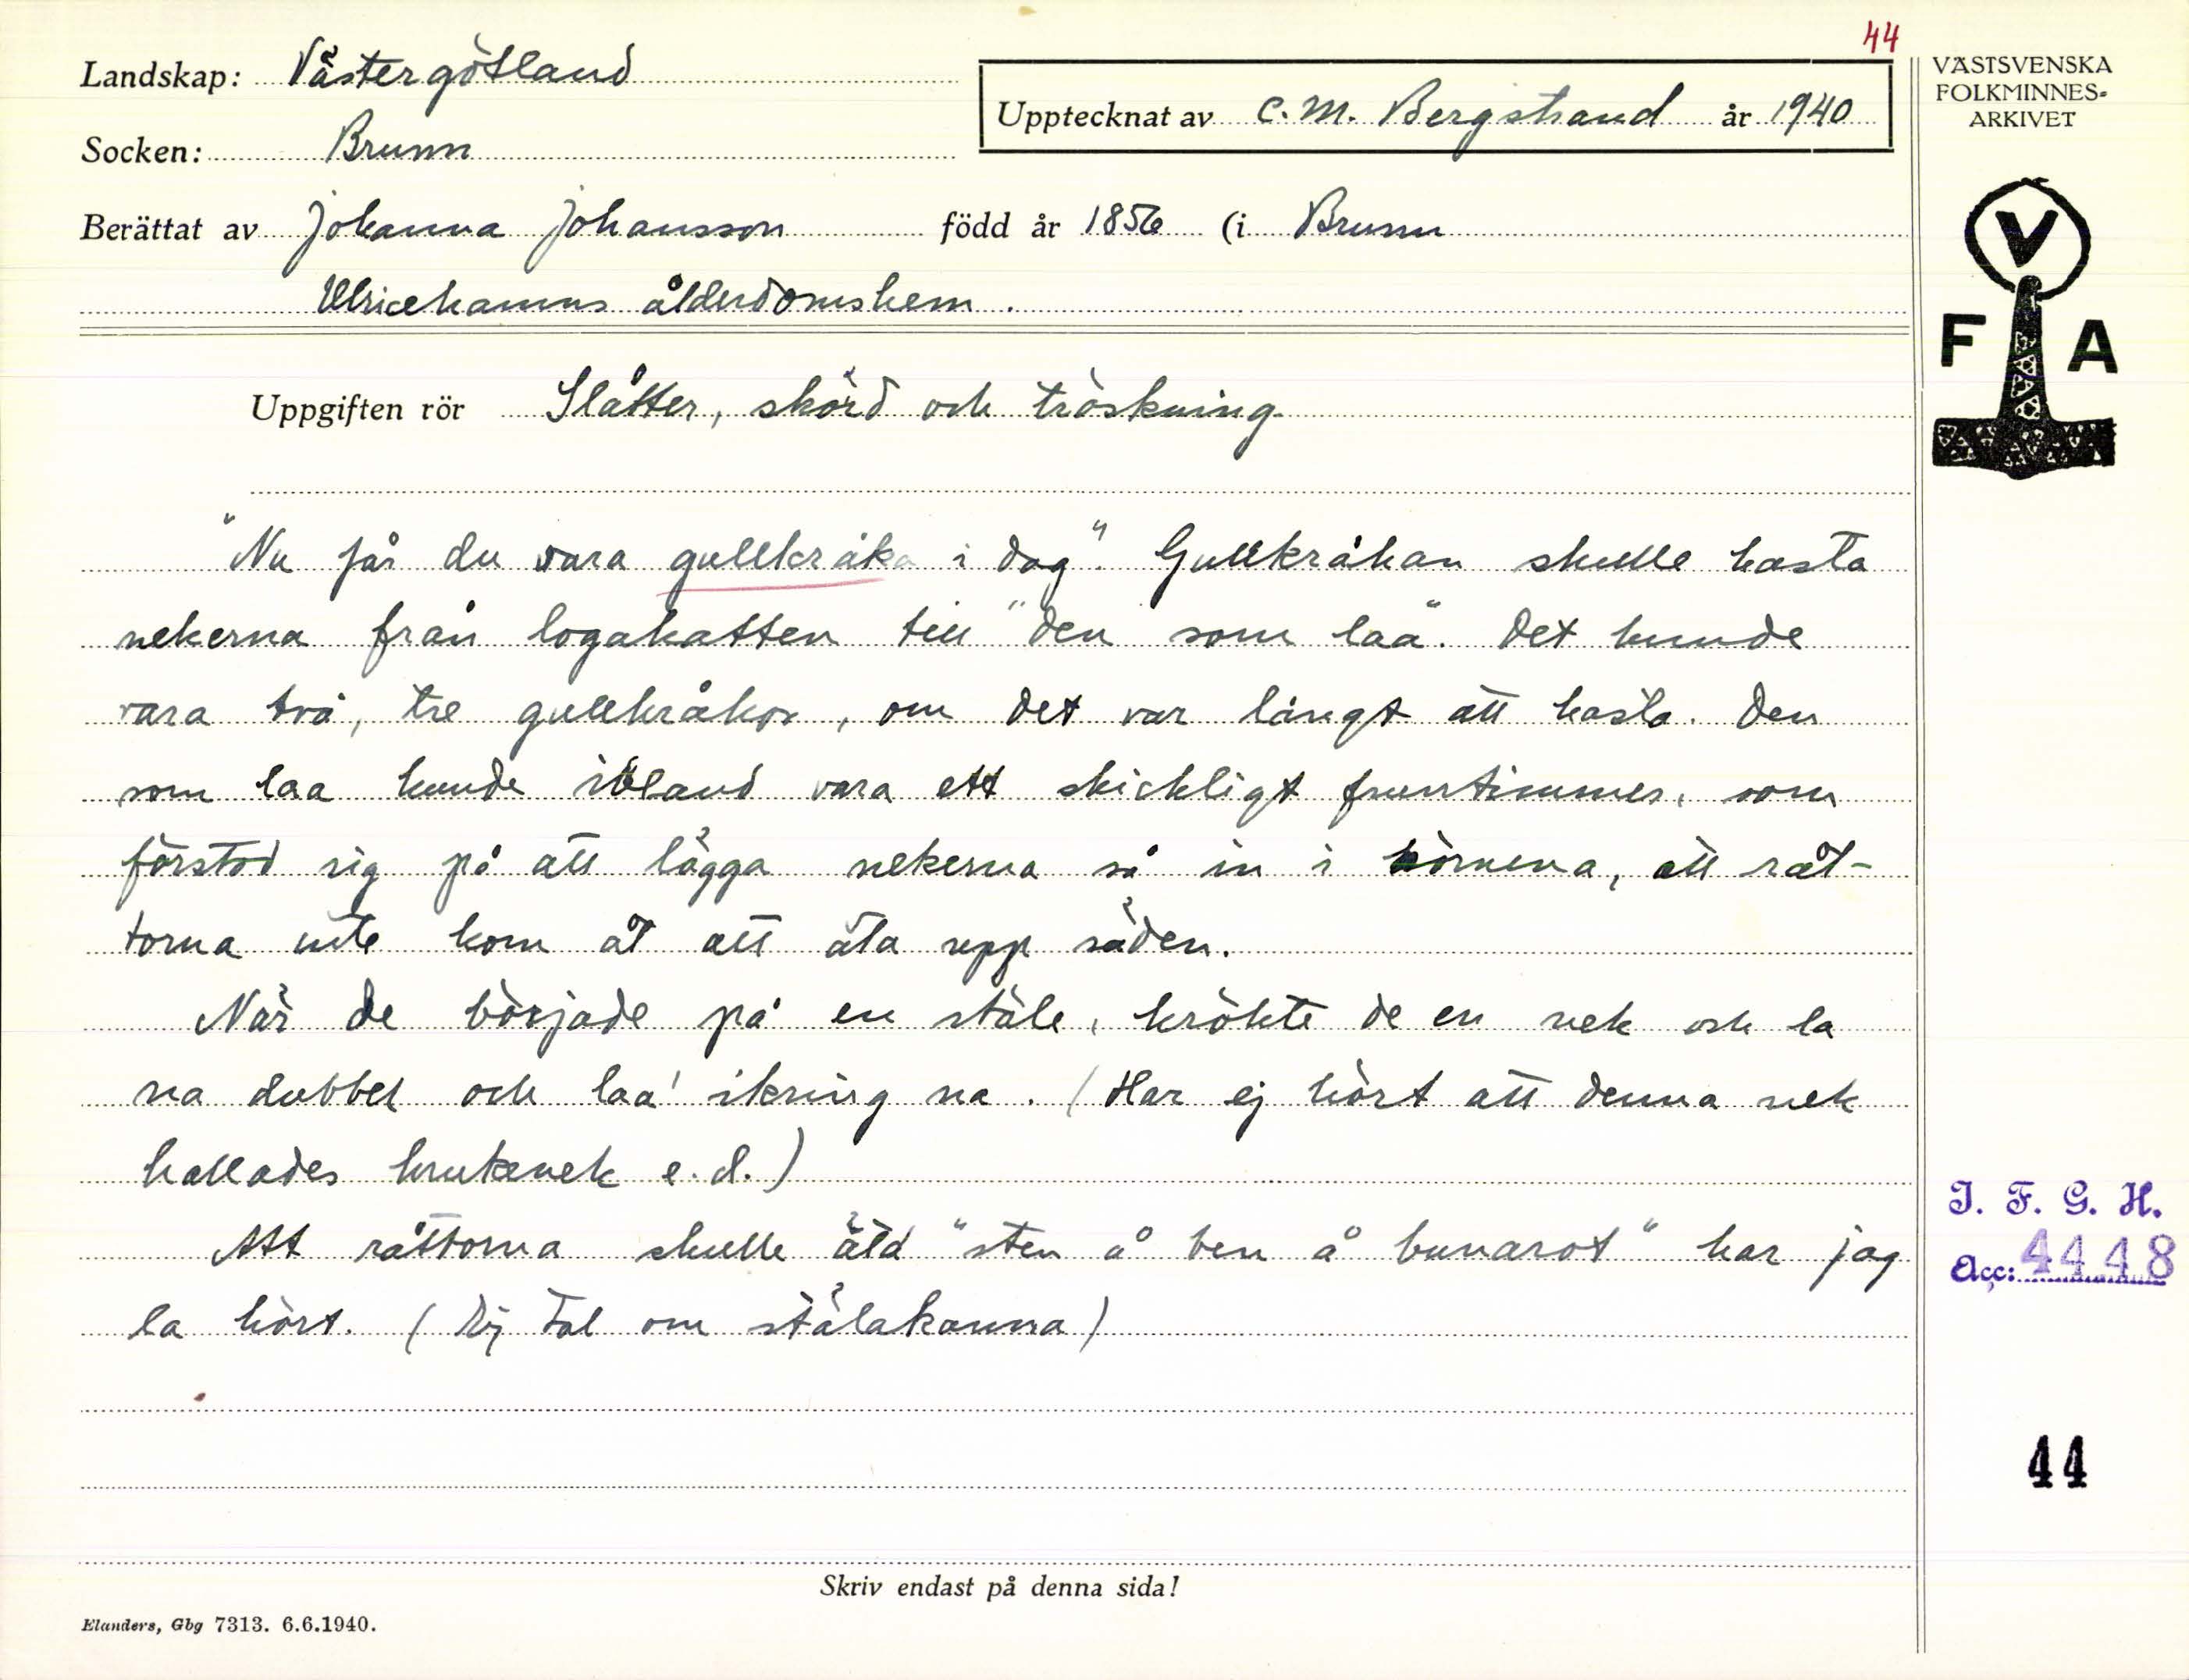 44
Landskap: Västergötland
Upptecknat av C. M. Bergstrand år 1940
Socken: Brunn
Berättat av Johanna Johansson född år 1856 (i Brunn
Ulricehamns ålderdomshem.
Uppgiften rör Slåtter, skörd och tröskning
"Nu får du vara gullkråka i dag". Gullkråkan skulle kasta
nekerna från logakatten till "den som laa". Det kunde
vara två, tre gullkråkor, om det var långt att kasta. Den
som laa kunde ibland vara ett skickligt fruntimmer, som
förstod sig på att lägga nekerna så in i hörnena, att råt-
torna inte kom åt att äta upp säden.
När de började på en stäle, krökte de en nek och la
na dubbel och laa' ikring na. (Har ej hört att denna nek
kallades krukenek e. d.)
Att råttorna skulle äta "sten å ben å bunarot" har jag
la hört. (Ej tal om stälakanna)
Skriv endast på denna sida!
Elanders, Gbg 7313. 6.6.1940.
VÄSTSVENSKA
FOLKMINNES-
ARKIVET
V
F A
I. F. G. H.
Acc: 4448
44